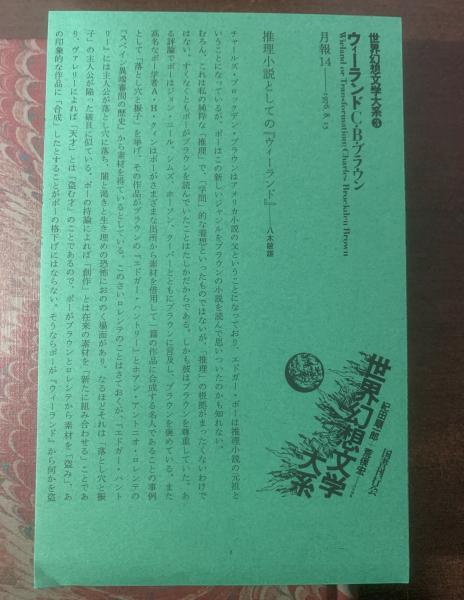 世界幻想文学大系③
ウィーランド C・B・ブラウン
Wieland or Transformation: Charles Brockden Brown
月報14——1976. 8. 15
国書刊行会
紀田順一郎 荒俣宏
世界幻想文学
大系
推理小説としての『ウィーランド』——八木敏雄
チャールズ・ブロックデン・ブラウンはアメリカ小説の父ということになっており、エドガー・ポーは推理小説の元祖と
いうことになっているが、ポーはこの新しいジャンルをブラウンの小説を読んで思いついたのかも知れない。
むろん、これは私の純粋な「推理」で、「学問」的な着想といったものではないが、「推理」の根拠がまったくないわけで
はない。すくなくともポーがブラウンを読んでいたことはたしかだからである。しかも彼はブラウンを尊重していた。あ
る評論でポーはジョン・ニール、シムズ、ホーソン、クーパーとともにブラウンに言及し、ブラウンを褒めている。また
高名なポー学者A・H・クィンはポーがさまざまな出所から素材を借用して一篇の作品に合成する名人であることの事例
として「落とし穴と振子」を挙げ、その作品がブラウンの『エドガー・ハントリー』とホアン・アントニオ・ロレンテの
『スペイン異端審問の歴史』から素材を得ているとしている。このさいロレンテのことはさておくが、『エドガー・ハント
リー』には主人公が落とし穴に落ち、闇と渇きと生き埋めの恐怖におののく場面があり、なるほどそれは「落とし穴と振
子」の主人公が陥った破目に似ている。ポーの持論によれば「創作」とは在来の素材を「新たに組み合わせる」ことであ
り、ヴァレリーによれば「天才」とは「盗む才」のことであるので、ポーがブラウンとロレンテから素材を「盗み」、あ
の印象的な作品に「合成」したとすることがポーの格下げにはならない。そうならポーが『ウィーランド』から何かを盗